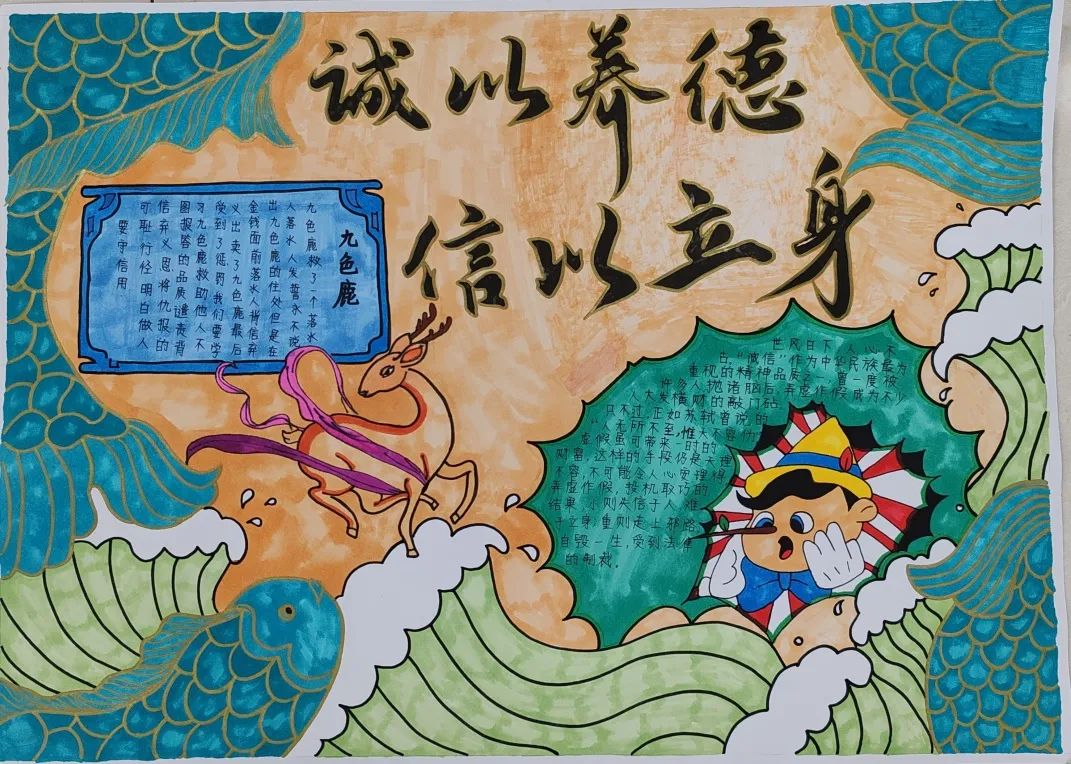 诚以养德
信以立身
九色鹿
九色鹿救了一个落水
人落水 人发誓永不说
出九色鹿的住处但是在
金钱面前落水人背信弃
义出卖了九色鹿最后
受到了惩罚我们要学
习九色鹿救助他人不
图报答的品质谴责背
信弃义恩将仇报的
可耻行径明白做人
要守信用
世风日下,人心不
古,“诚信”作为中华民族最为
重视的精神品质之一,曾一度被
许多人抛诸脑后,弄虚作假成为不少
人大发横财的敲门砖。
只不过,正如苏轼曾说的
“人无所不至,惟天不容伪”
虚假虽可带来一时的
财富,这样的手段仍是天理
不容,不可能令人心安理得
弄虚作假,投机取巧的
结果,小则失信于人,难
于立身;重则走上邪路,
自毁一生,受到法律
的制裁。